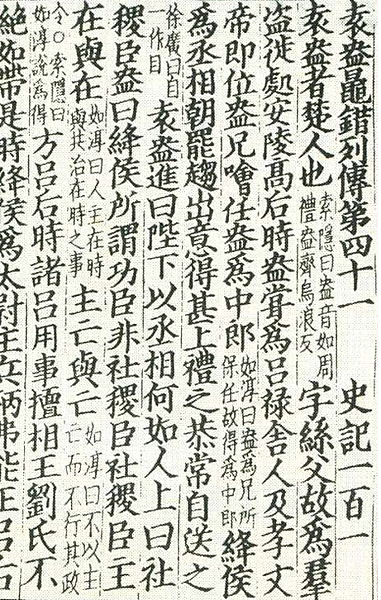 袁盎鼂錯列傳第四十一　史記一百一
袁盎者楚人也索隱曰盎音如周禮盎齊烏浪反字絲父故爲羣
盜徙處安陵髙后時盎甞爲呂祿舎人及孝文
帝即位盎兄噲任盎爲中郎如淳曰盎爲兄所保任故得爲中郎絳侯
爲丞相朝罷趨出意得甚上禮之恭常自送之
徐廣曰自一作目袁盎進曰陛下以丞相何如人上曰社
稷臣盎曰絳侯所謂功臣非社稷臣社稷臣王
在與在如淳曰人主在時與共治在時之事主亡與亡如淳曰不以主亡而不行其政
令○索隱曰如淳說爲得方呂后時諸呂用事擅相王劉氏不
絶如帶是時絳侯爲太尉主兵柄弗能正呂后